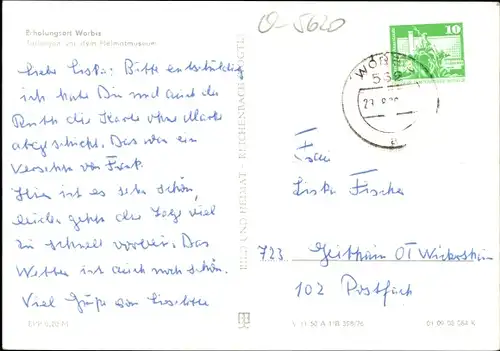 O-5620
Erholungsort Worbis
vor dem Heimatmuseum
Liebe Liska! Bitte entschuldige
ich habe Dir und auch der
Ruth die Karte ohne Marke
abgeschickt. Das war ein
Versehen von Frank.
Hier ist es sehr schön,
leider gehen die Tage viel
zu schnell vorbei. Das
Wetter ist auch noch schön.
Viel Grüße von Lieselotte
BILD UND HEIMAT · REICHENBACH
10
WORBIS
562
a
Frau
Liska Fischer
723 Geithain OT Wickershain
102 Postfach
EVP 0,20 M
V 11 50 A 1/B 358/76
01 09 08 064 K